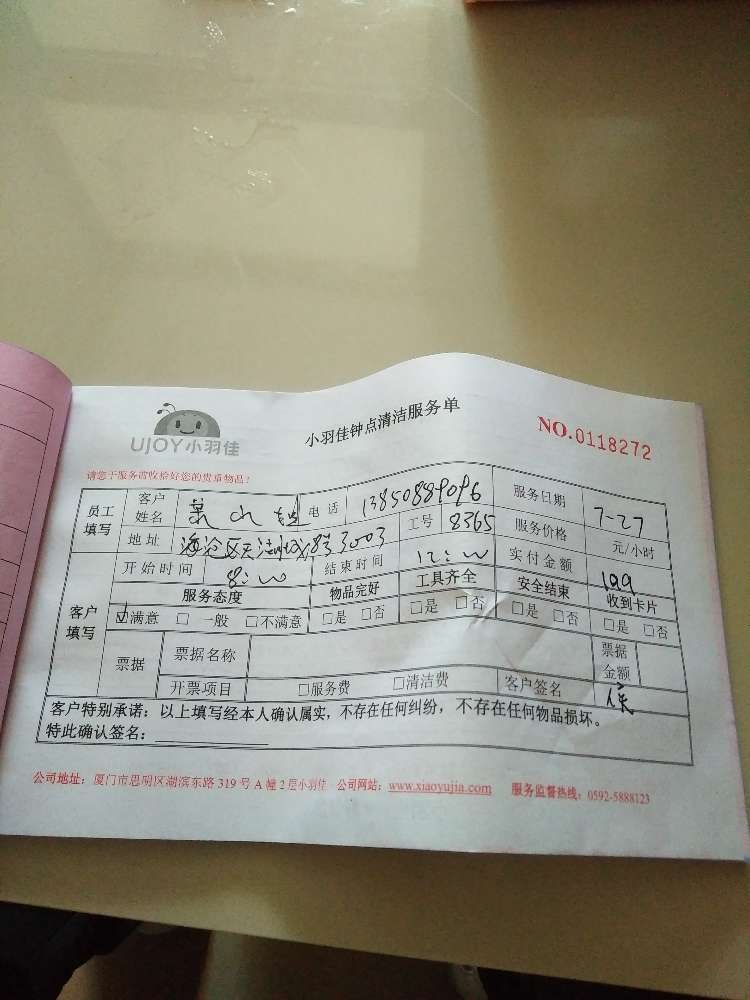 UJOY小羽佳
小羽佳钟点清洁服务单
NO.0118272
请您于服务前收拾好您的贵重物品!
员工填写 客户姓名 电话 13850889096 服务日期 7-27
地址 海沧区天湖城 3003 工号 8365 服务价格 元/小时
开始时间 8:00 结束时间 12:00 实付金额 199
客户填写 服务态度 物品完好 工具齐全 安全结束 收到卡片
☑满意 □ 一般 □不满意 □是 □否 □是 □否 □是 □否 □是 □否
票据 票据名称 票据金额
开票项目 □服务费 □清洁费 客户签名
客户特别承诺:以上填写经本人确认属实,不存在任何纠纷,不存在任何物品损坏。
特此确认签名:
公司地址:厦门市思明区湖滨东路 319 号 A 幢 2 层小羽佳 公司网站:www.xiaoyujia.com 服务监督热线:0592-5888123